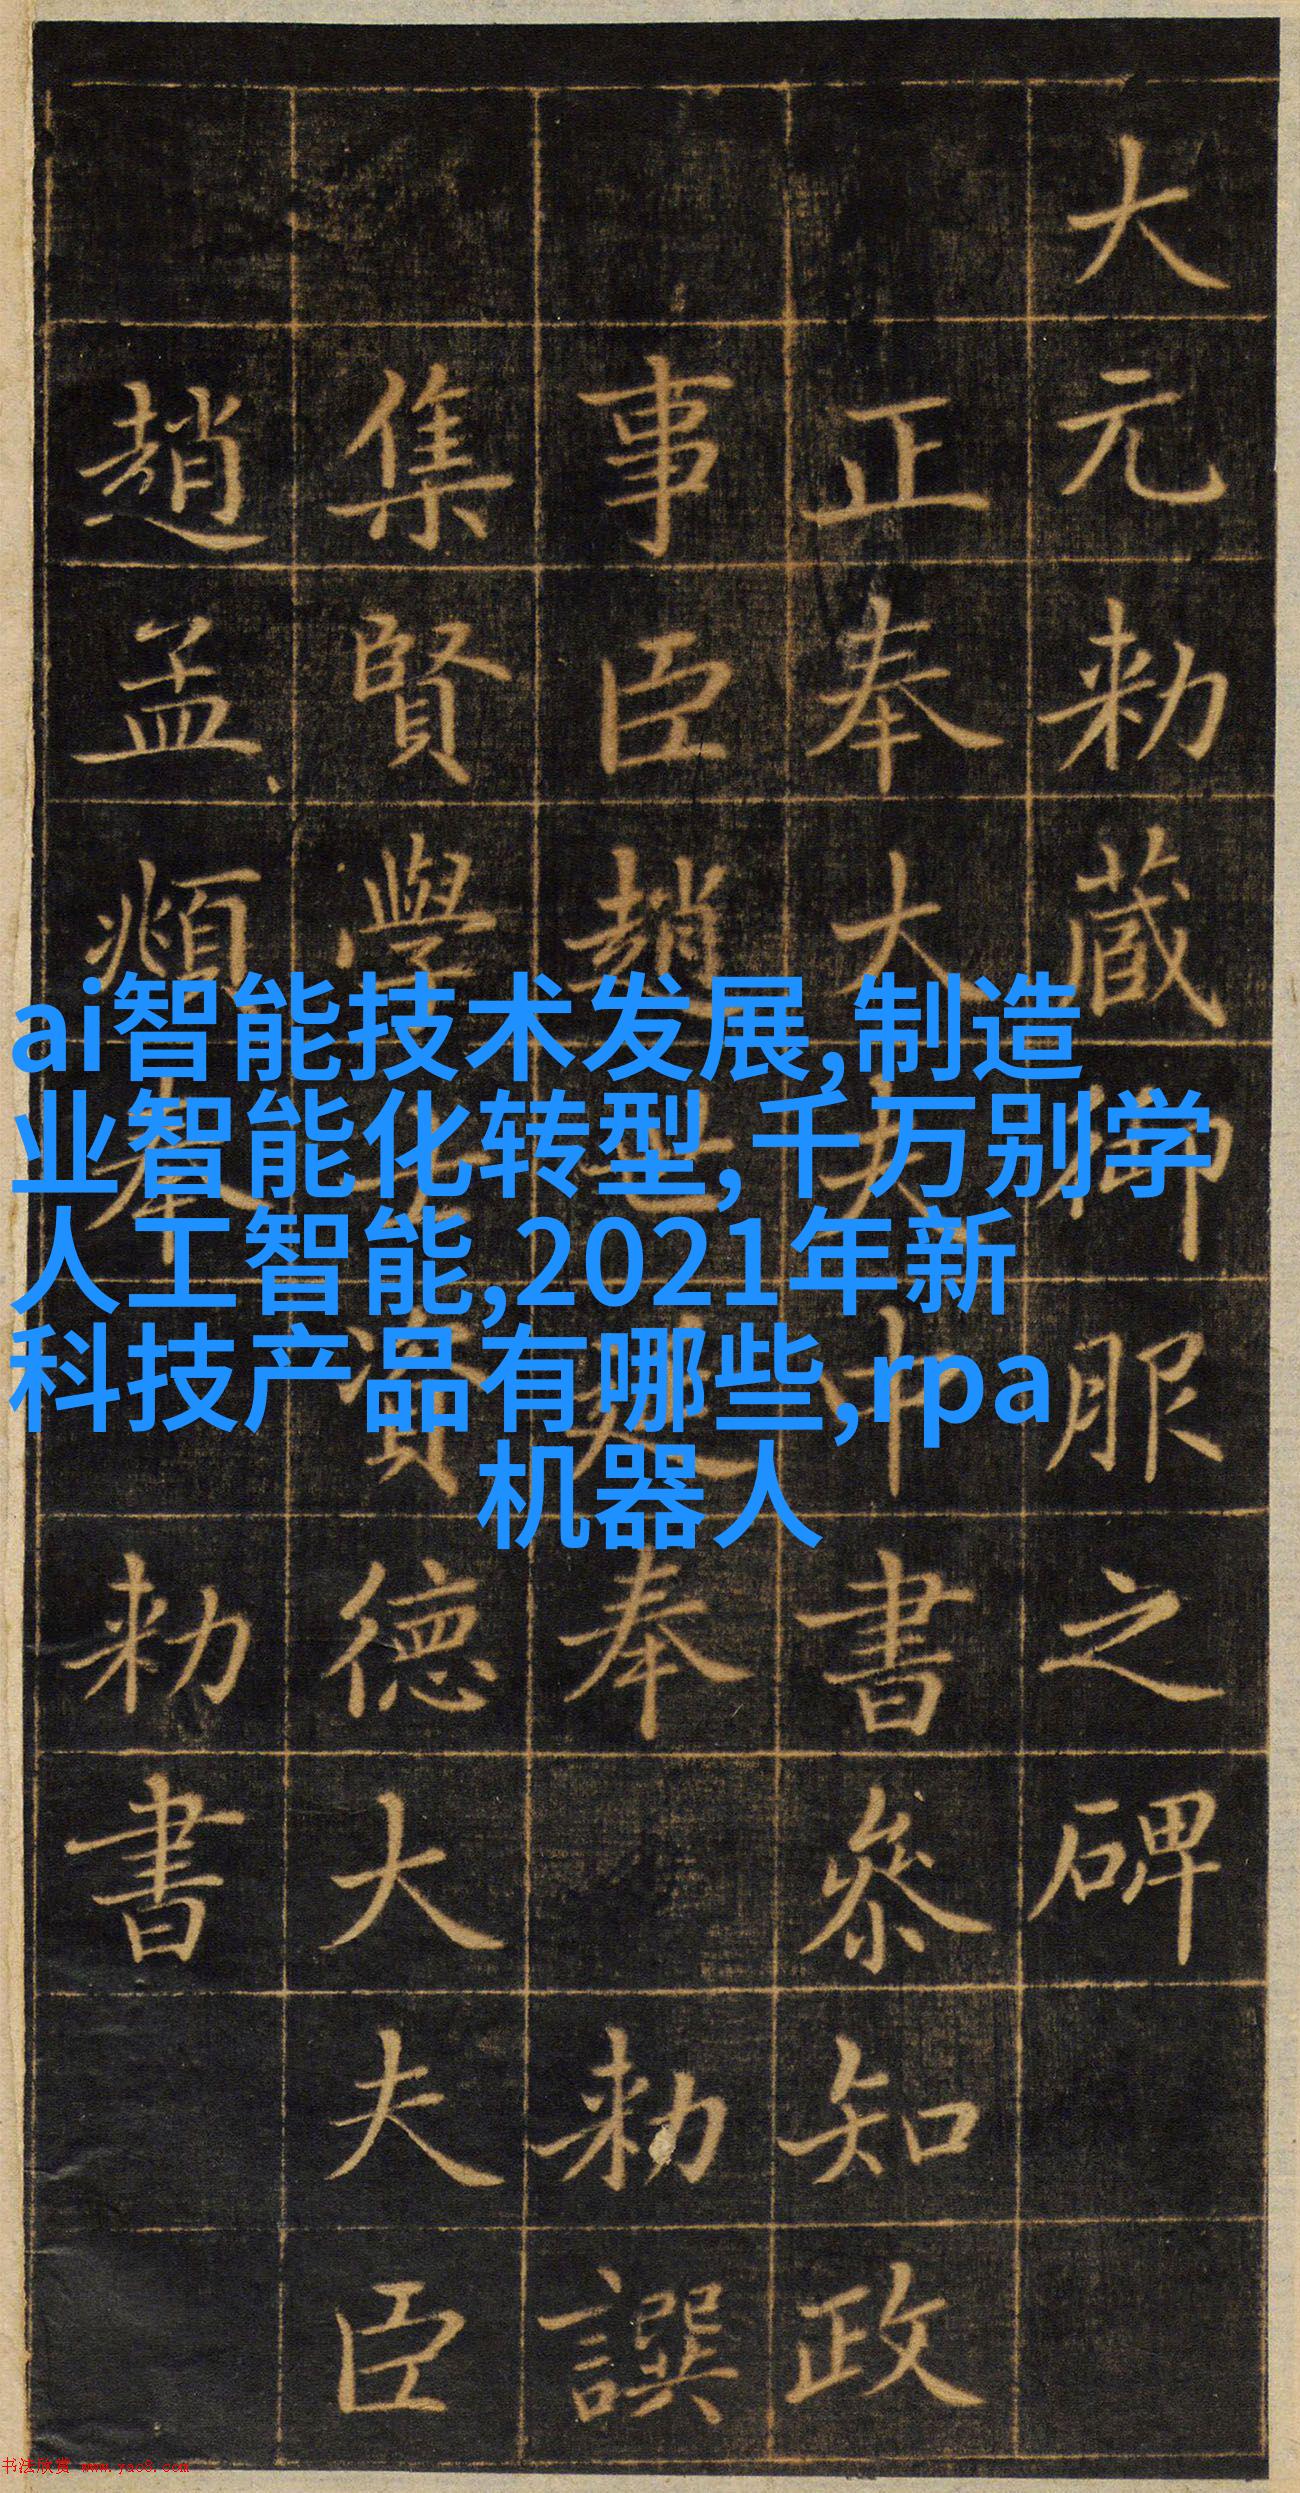 大元勅蔵御服之碑
正奉大夫中書叅知政
事臣趙世延奉勅譔
集賢學士資德大夫臣
趙孟頫奉勅書
ai智能技术发展,制造
业智能化转型,千万别学
人工智能,2021年新
科技产品有哪些,rpa
机器人
书法欣赏 www.yac8.com